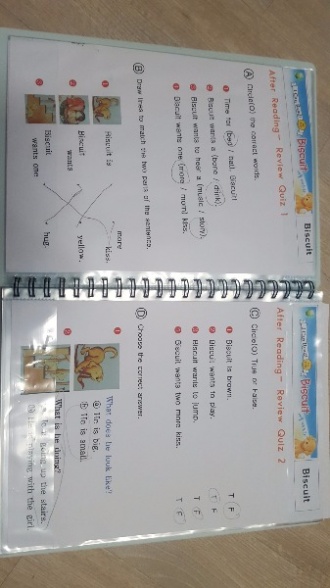 Biscuit
Biscuit
After Reading- Review Quiz 1
Ⓐ Circle(O) the correct words.
1 Time for (bed / ball), Biscuit!
2 Biscuit wants a (bone / drink).
3 Biscuit wants to hear a (music / story).
4 Biscuit wants one (more / mom) kiss.
Ⓑ Draw lines to match the two parts of the sentence.
1 Biscuit is
more kiss.
2 Biscuit wants
yellow.
3 Biscuit wants one
hug.
Biscuit
Biscuit
After Reading- Review Quiz 2
Ⓒ Circle(O) True or False.
1 Biscuit is brown. T F
2 Biscuit wants to play. T F
3 Biscuit wants to jump. T F
4 Biscuit wants two more kiss. T F
Ⓓ Choose the correct answer.
1 What does he look like?
ⓐ He is big.
ⓑ He is small.
2 What is he doing?
up the stairs.
with the girl.